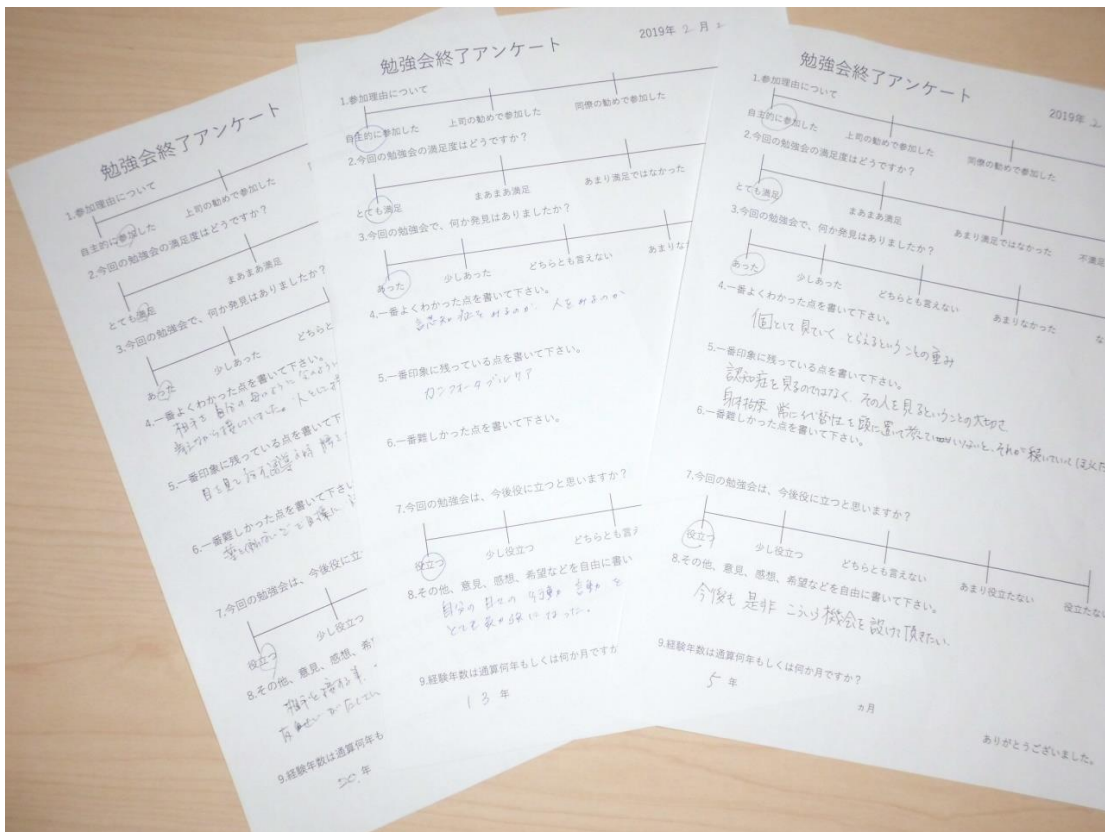 勉強会終了アンケート
1.参加理由について
自主的に参加した 上司の勧めで参加した
2.今回の勉強会の満足度はどうですか？
とても満足 まあまあ満足
3.今回の勉強会で、何か発見はありましたか？
あった 少しあった どちらと
4.一番よくわかった点を書いて下さい。
5.一番印象に残っている点を書いて下
6.一番難しかった点を書いて下さい
7.今回の勉強会は、今後役に立つ
役立つ 少し役立つ
8.その他、意見、感想、希
9.経験年数は通算何年も
20 年
勉強会終了アンケート
2019年 2 月 2
1.参加理由について
自主的に参加した 上司の勧めで参加した 同僚の勧めで参加した
2.今回の勉強会の満足度はどうですか？
とても満足 まあまあ満足 あまり満足ではなかった
3.今回の勉強会で、何か発見はありましたか？
あった 少しあった どちらとも言えない あまりな
4.一番よくわかった点を書いて下さい。
認知症をみるのか 人をみるのか
5.一番印象に残っている点を書いて下さい。
カンフォータブルケア
6.一番難しかった点を書いて下さい。
7.今回の勉強会は、今後役に立つと思いますか？
役立つ 少し役立つ どちらとも言え
8.その他、意見、感想、希望などを自由に書い
自分の 日々の 行動 言動 を
とても 良い になった。
9.経験年数は通算何年もしくは何か月ですか
13 年
勉強会終了アンケート
2019年 2
1.参加理由について
自主的に参加した 上司の勧めで参加した 同僚の勧めで参加した
2.今回の勉強会の満足度はどうですか？
とても満足 まあまあ満足 あまり満足ではなかった 不満足
3.今回の勉強会で、何か発見はありましたか？
あった 少しあった どちらとも言えない あまりなかった な
4.一番よくわかった点を書いて下さい。
個として見ていく とらえるということの重み
5.一番印象に残っている点を書いて下さい。
認知症を見るのではなく その人を見るということの大切さ
身体拘束 常に代替性を頭に置いて いないと、それが続いていく
6.一番難しかった点を書いて下さい。
7.今回の勉強会は、今後役に立つと思いますか？
役立つ 少し役立つ どちらとも言えない あまり役立たない 役立たない
8.その他、意見、感想、希望などを自由に書いて下さい。
今後も 是非 こういう機会を設けて頂きたい。
9.経験年数は通算何年もしくは何か月ですか？
5 年 ヵ月
ありがとうございました。